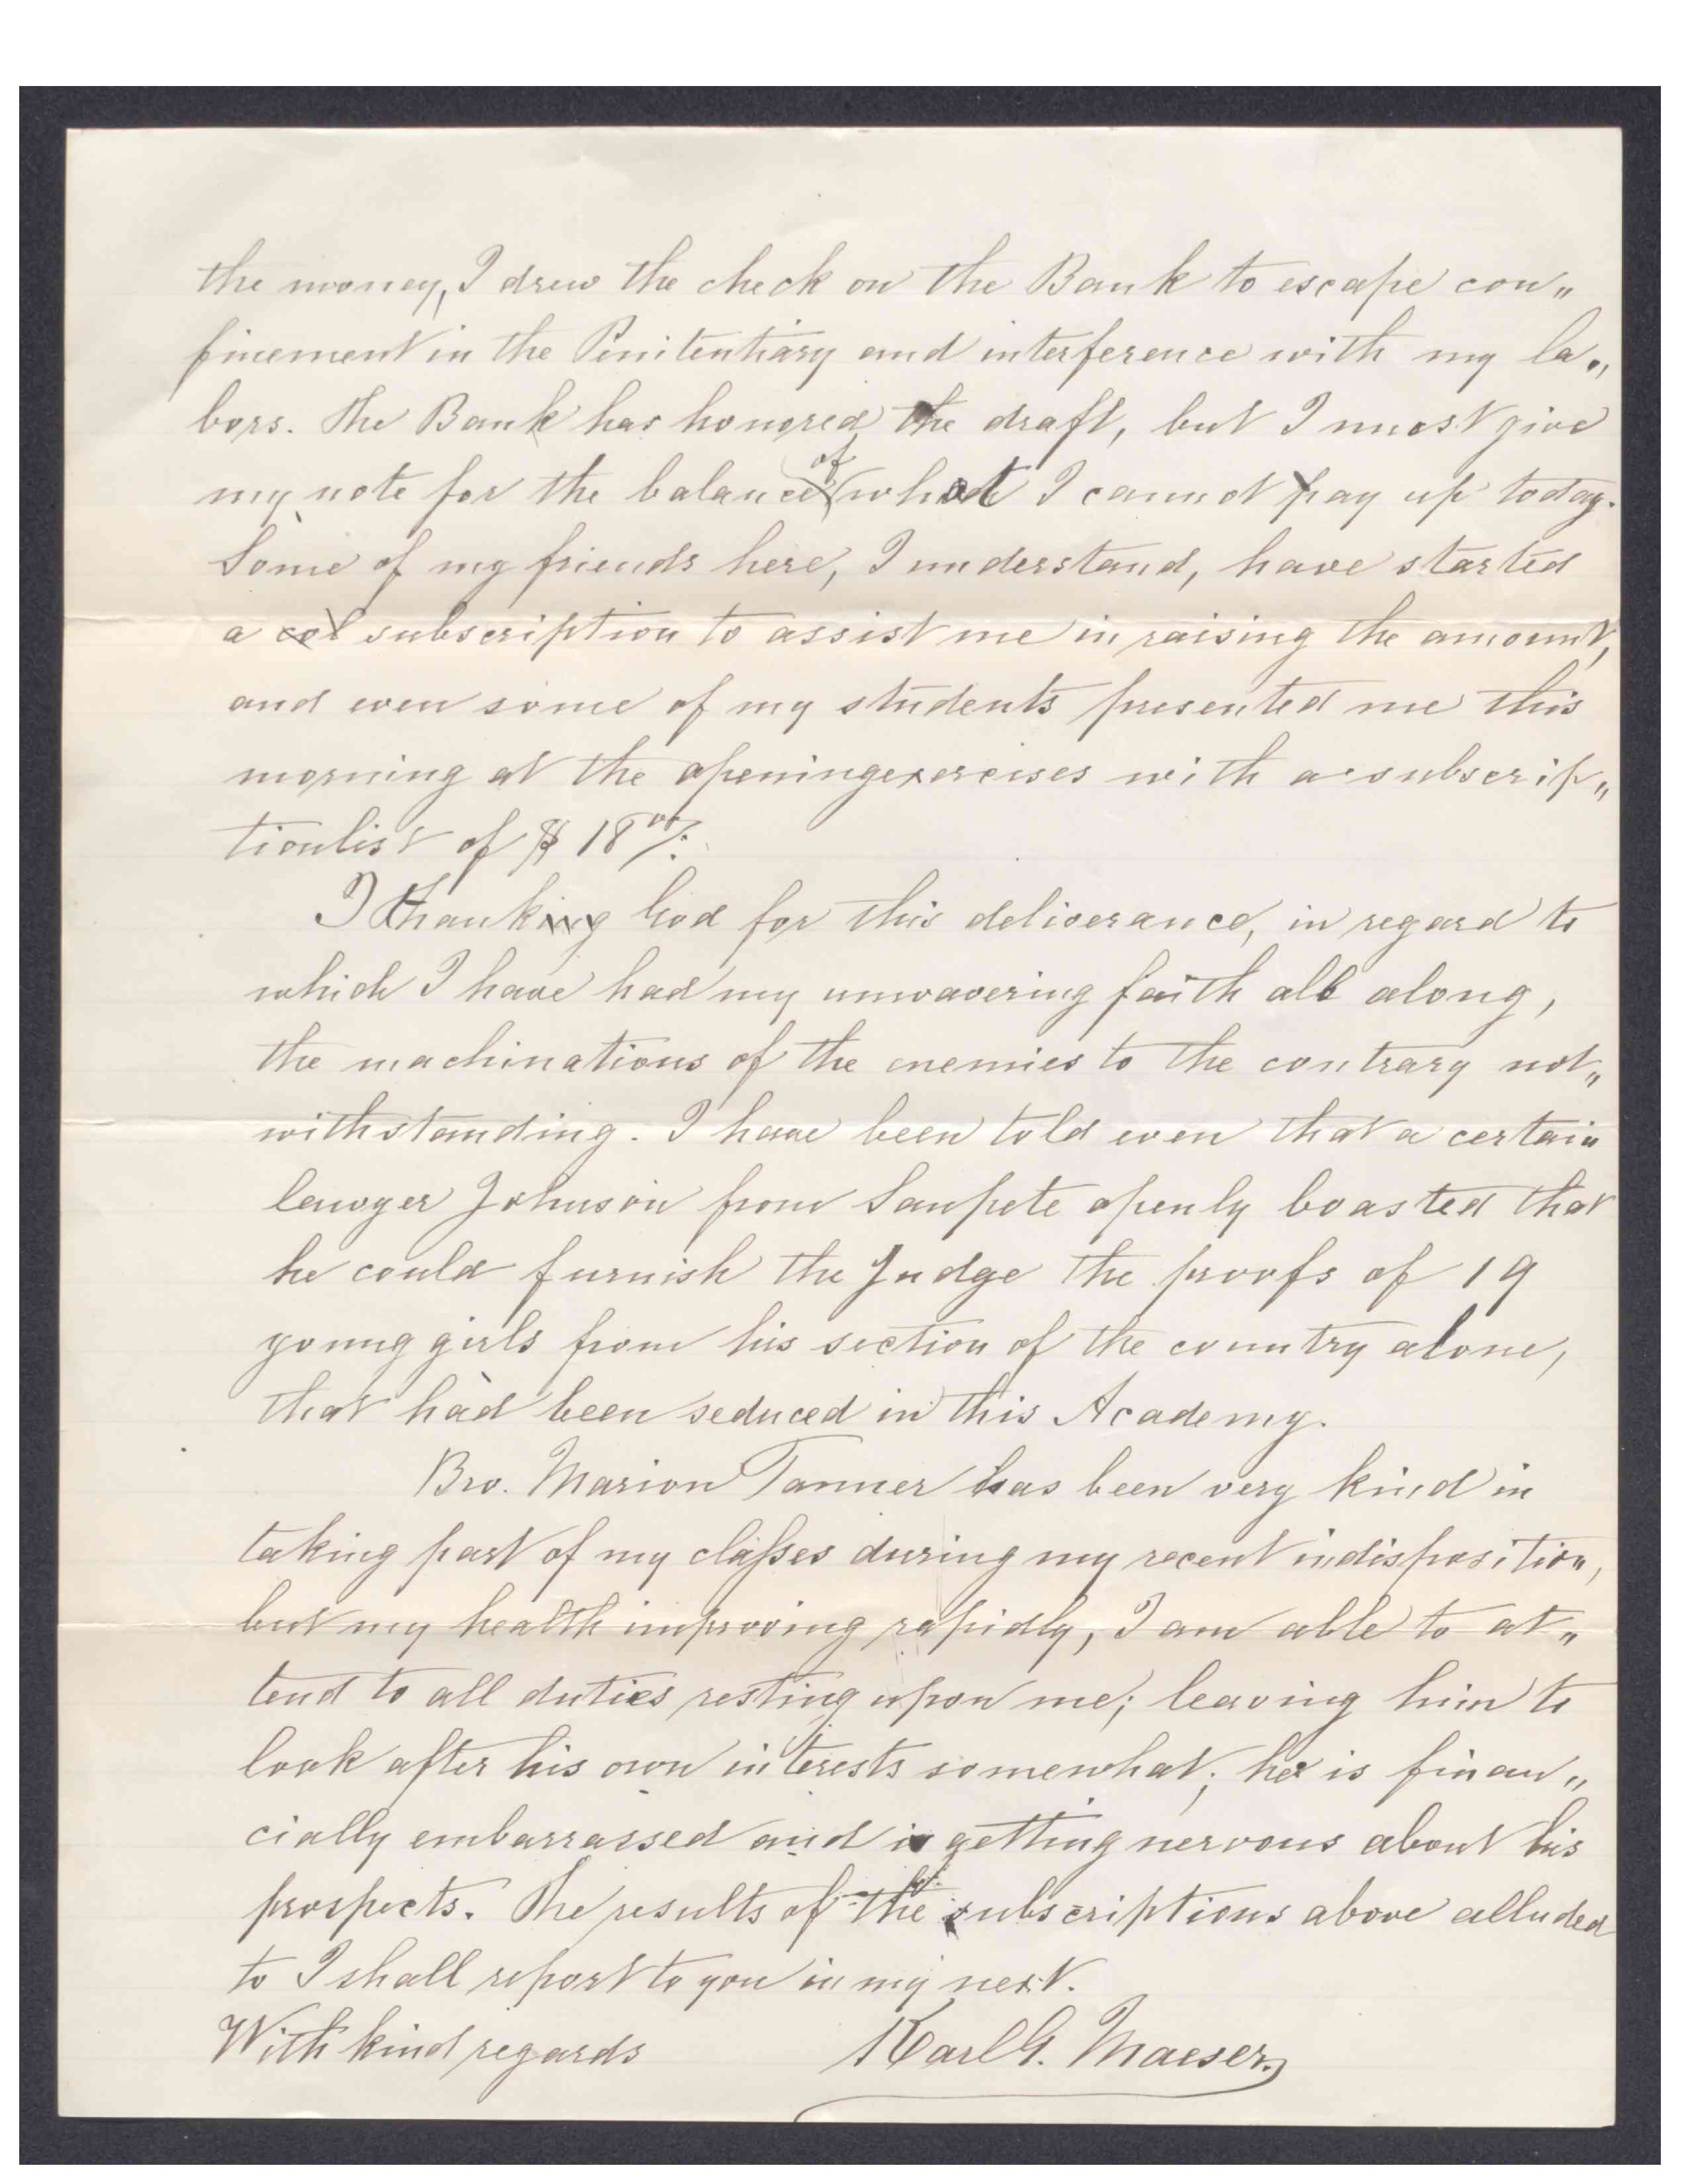 the money, I drew the check on the Bank to escape con„
finement in the Penitentiary and interference with my la„
bors. The Bank has honored the draft, but I must give
my note for the balance of what I cannot pay up today.
Some of my friends here, I understand, have started
a col subscription to assist me in raising the amount,
and even some of my students presented me this
morning at the openingexercises with a subscrip„
tionlist of $ 18
I thanking God for this deliverance, in regard to
which I have had my unwavering faith all along,
the machinations of the enemies to the contrary not„
withstanding. I have been told even that a certain
lawyer Johnson from Sanpete openly boasted that
he could furnish the Judge the proofs of 19
young girls from his section of the country alone,
that had been seduced in this Academy.
Bro. Marion Tanner has been very kind in
taking part of my classes during my recent indisposition,
but my health improving rapidly, I am able to at„
tend to all duties resting upon me; leaving him to
look after his own interests somewhat; he is finan„
cially embarrassed and is getting nervous about his
prospects. The results of the subscriptions above alluded
to I shall report to you in my next.
With kind regards Karl G. Maeser.